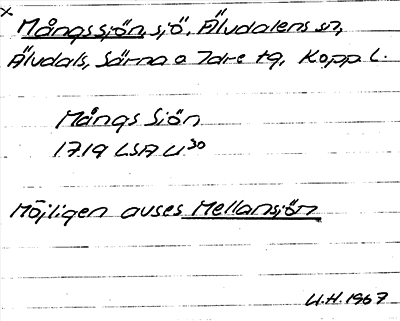 x
Mångssjön, sjö, Älvdalens sn,
Älvdals, Särna o Idre tg, Kopp. L.
Mångs Siön
1719 LSA U30
Möjligen avses Mellansjön
U.H. 1967